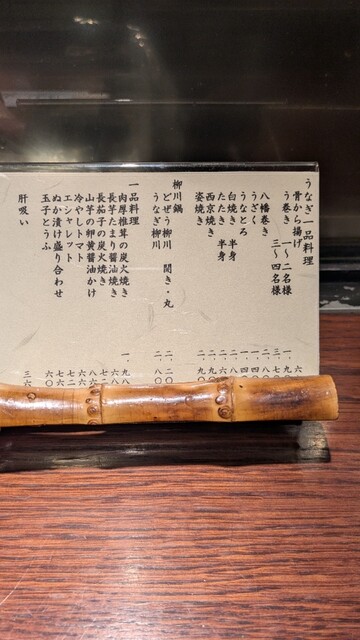 うなぎ一品料理
骨から揚げ
う巻き 一〜二名様
三〜四名様
八幡巻き
うざく
うなとろ
白焼き 半身
たたき 半身
西京焼き
姿焼き
柳川鍋
どぜう柳川 開き・丸
うなぎ柳川
一品料理
肉厚椎茸の炭火焼き
長芋たまり醤油焼き
長茄子の炭火焼き
山芋の卵黄醤油かけ
冷やしトマト
エシャレット
ぬか漬け盛り合わせ
玉子とうふ
肝吸い